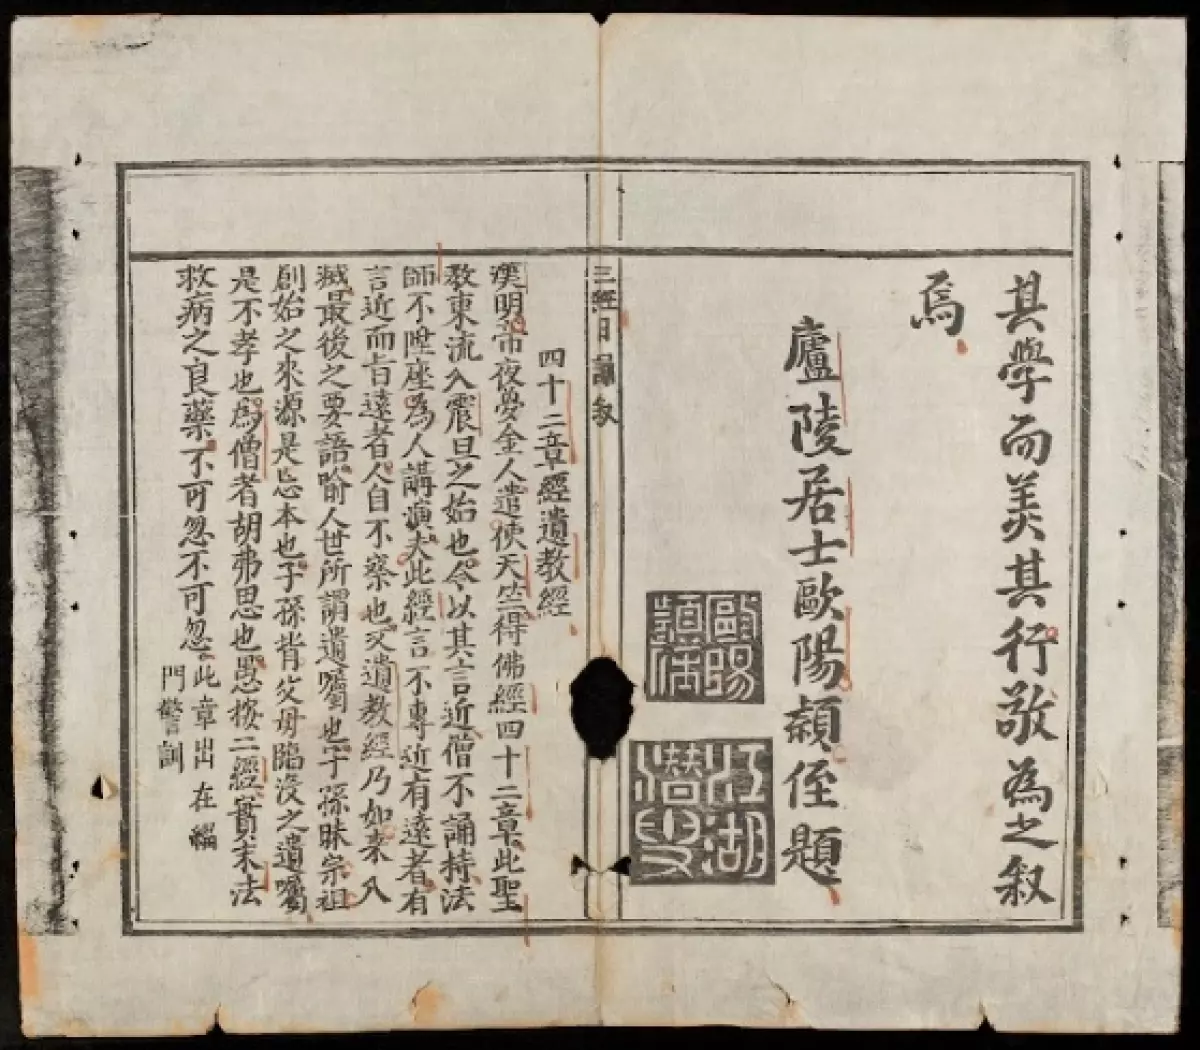 其學而羨其行敬為之叙
焉
廬陵居士歐陽頴侄題
江湖
三經日誦叙
四十二章經遺教經
漢明帝夜夢金人遣使天竺得佛經四十二章此聖
教東流入震旦之始也今以其言近僧不誦持法
師不陞座為人講演夫此經言不專近有遠者有
言近而旨遠者人自不察也又遺教經乃如來入
滅最後之要語喻人世所謂遺囑也子孫昧宗祖
創始之來源是忘本也子孫背父母臨沒之遺囑
是不孝也為僧者胡弗思也愚按二經實末法
救病之良藥不可忽不可忽此章出在緇
門警訓